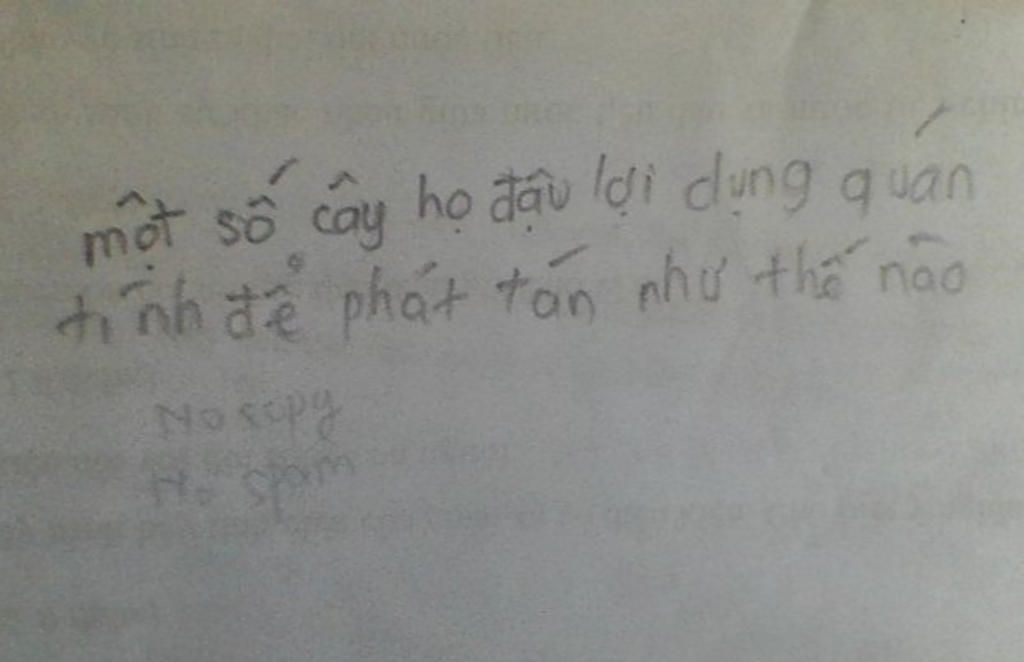 một số cây họ đậu lợi dụng quán
tính để phát tán như thế nào
No copy
No spam